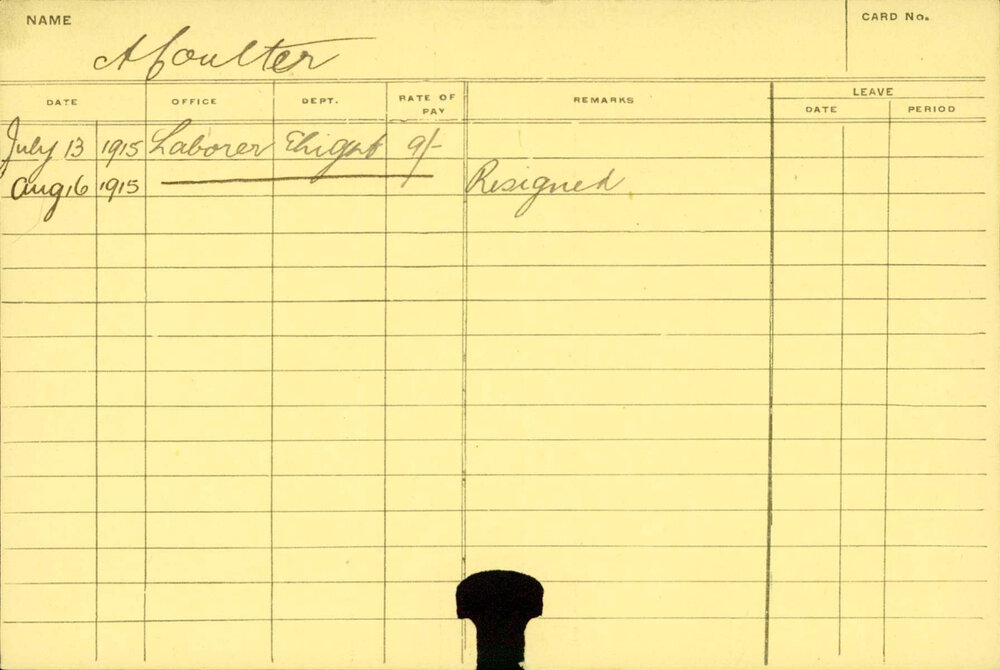 NAME
CARD No.
A Coulter
DATE OFFICE DEPT. RATE OF PAY REMARKS LEAVE
DATE PERIOD
July 13 1915 Laborer Elight 9/-
Aug 16 1915 Resigned